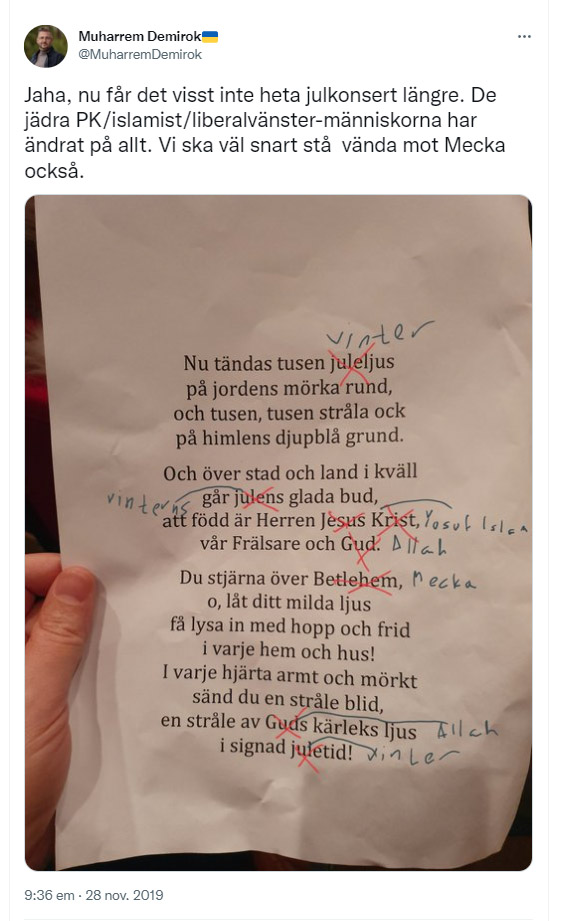 Muharrem Demirok
@MuharremDemirok
Jaha, nu får det visst inte heta julkonsert längre. De
jädra PK/islamist/liberalvänster-människorna har
ändrat på allt. Vi ska väl snart stå vända mot Mecka
också.
vinter
Nu tändas tusen juleljus
på jordens mörka rund,
och tusen, tusen stråla ock
på himlens djupblå grund.
Och över stad och land i kväll
vinterns går julens glada bud,
att född är Herren Jesus Krist, Yosuf Islam
vår Frälsare och Gud. Allah
Du stjärna över Betlehem, Mecka
o, låt ditt milda ljus
få lysa in med hopp och frid
i varje hem och hus!
I varje hjärta armt och mörkt
sänd du en stråle blid,
en stråle av Guds kärleks ljus Allah
i signad juletid! vinter
9:36 em · 28 nov. 2019